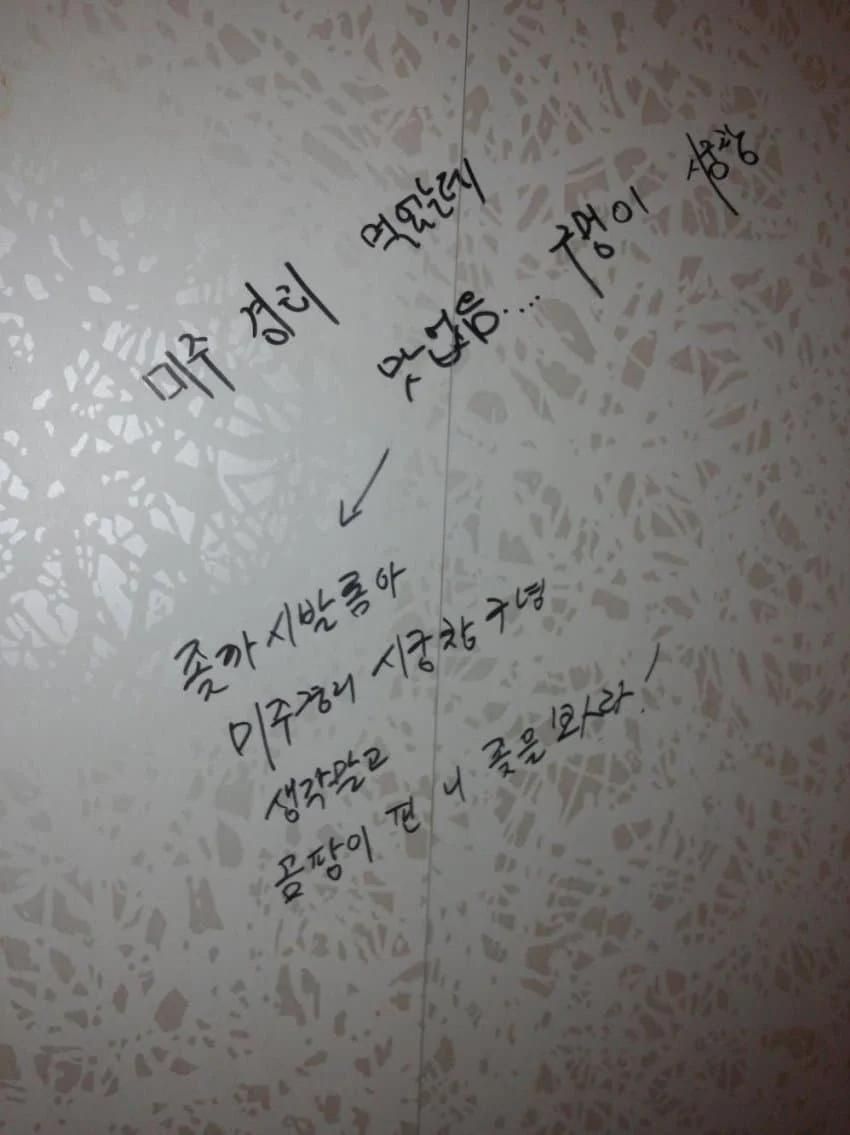 미주 경리 먹었는데
맛 없음.... 구멍이 시궁창
좆까 시발롬아
미주경리 시궁창 구녕
생각말고
곰팡이 핀 니 좆을 봐라!